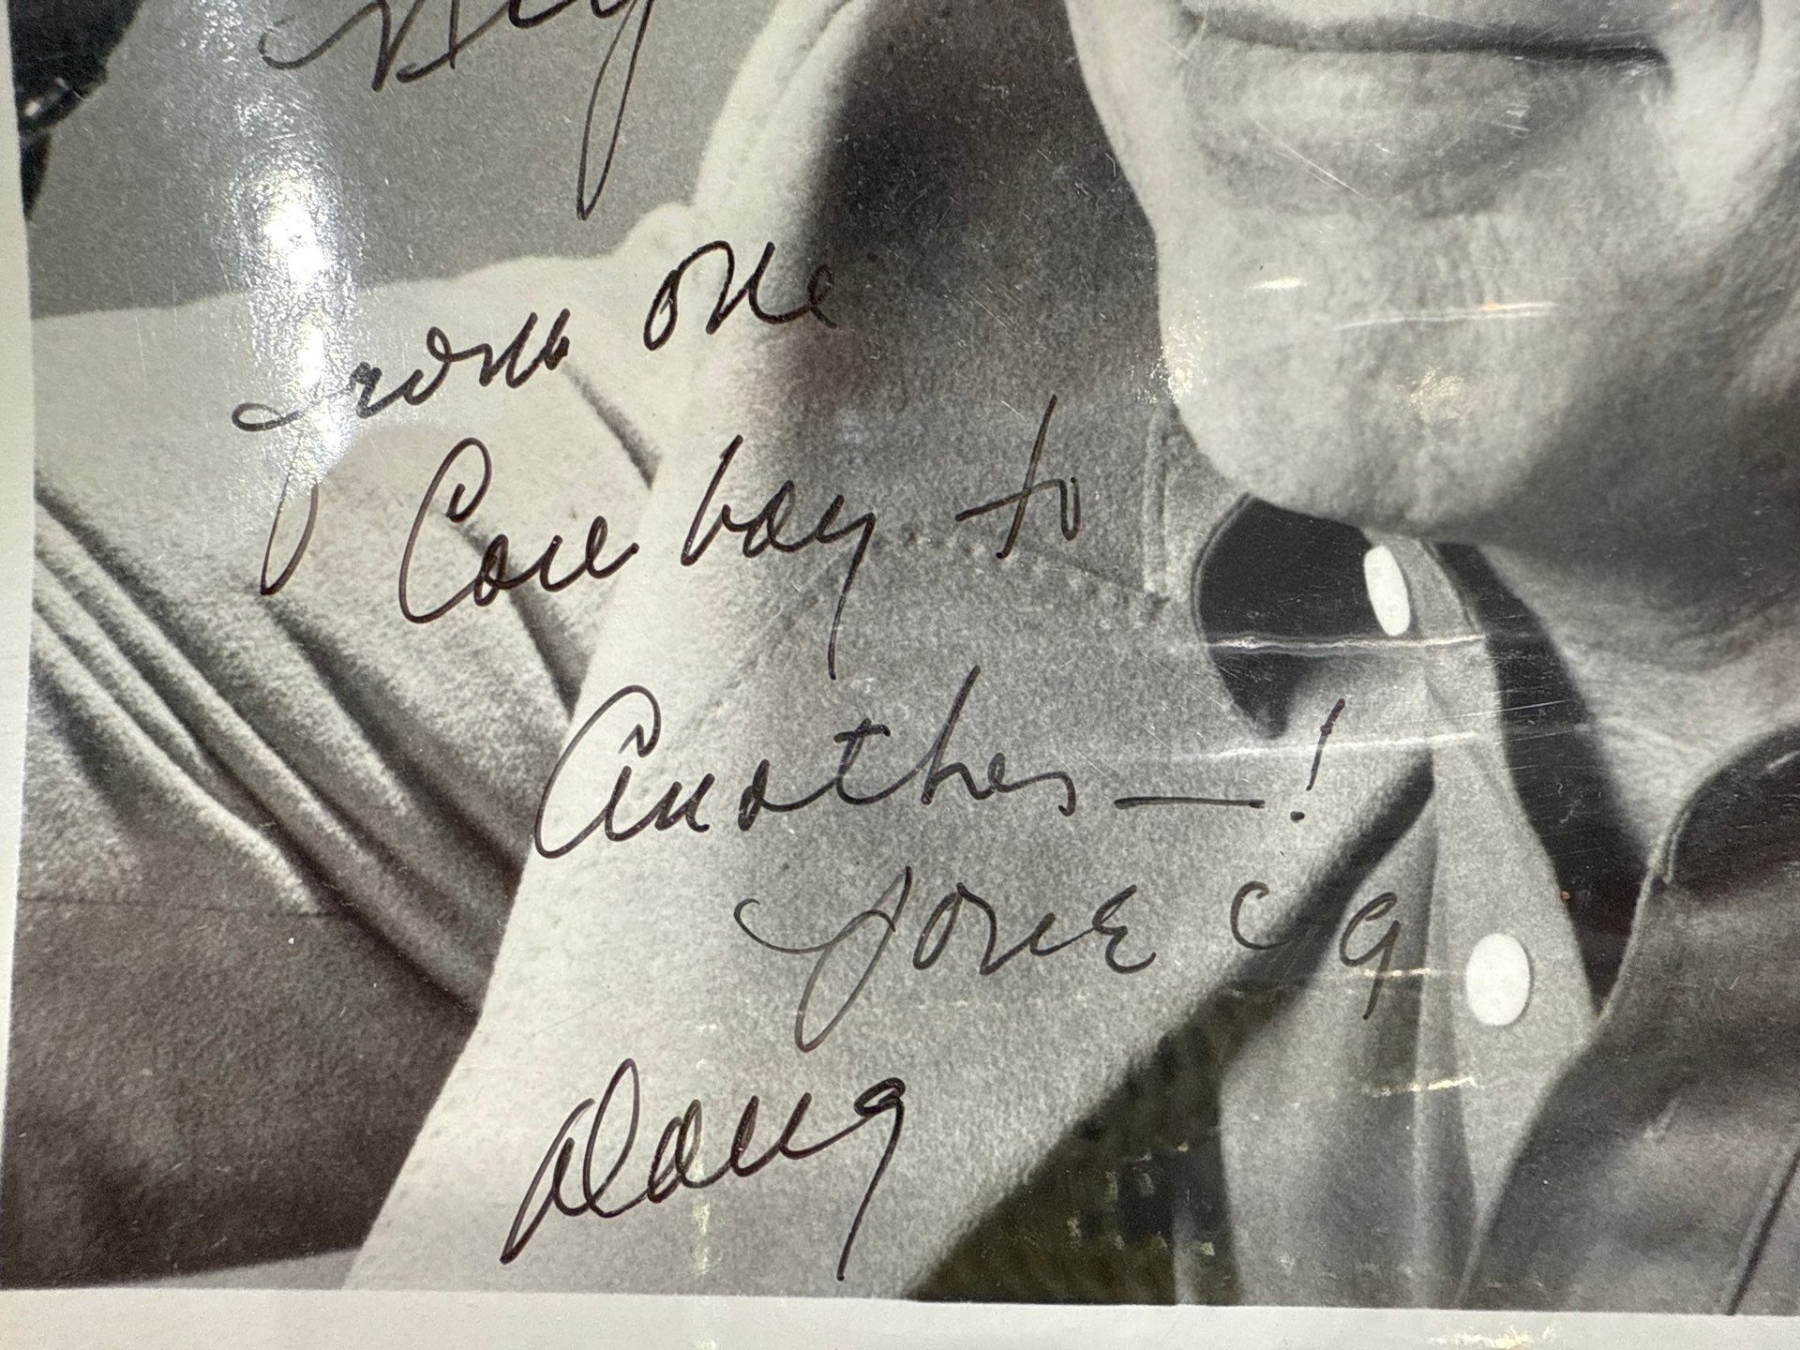 from one
Cowboy to
Another —!
Doug